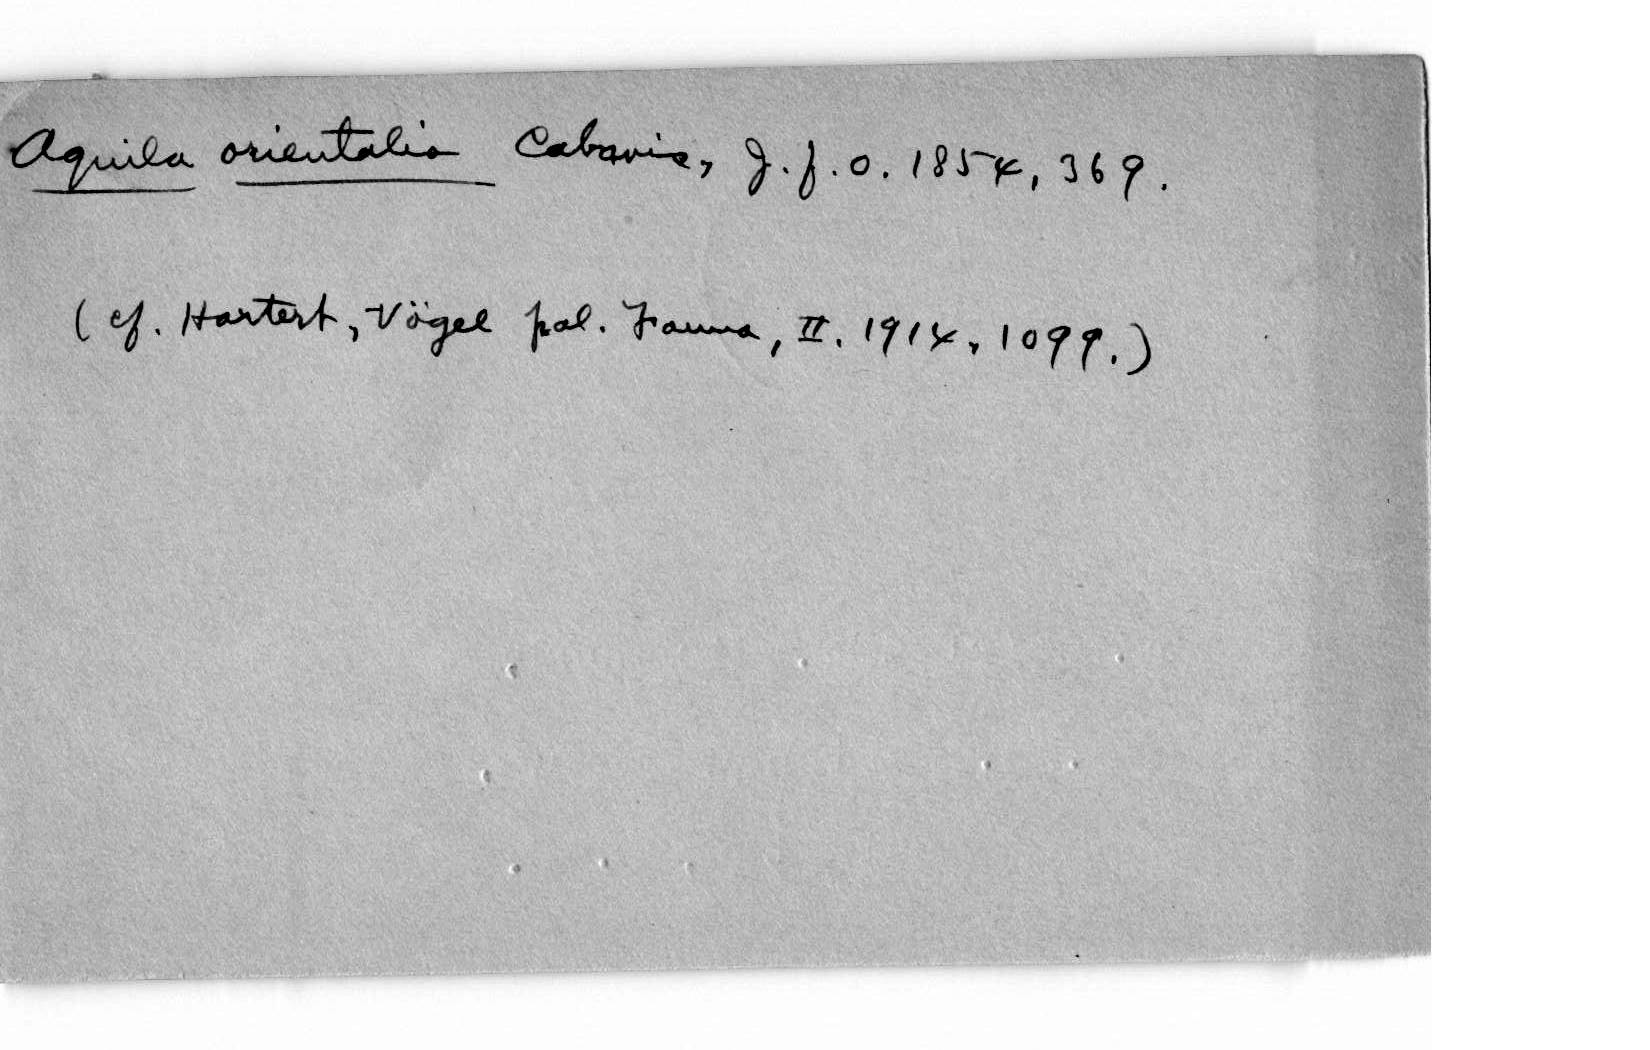 Aquila orientalis Cabanis, J.f.O. 1854, 369.
(cf. Hartert, Vögel pal. Fauna, II. 1914, 1099.)